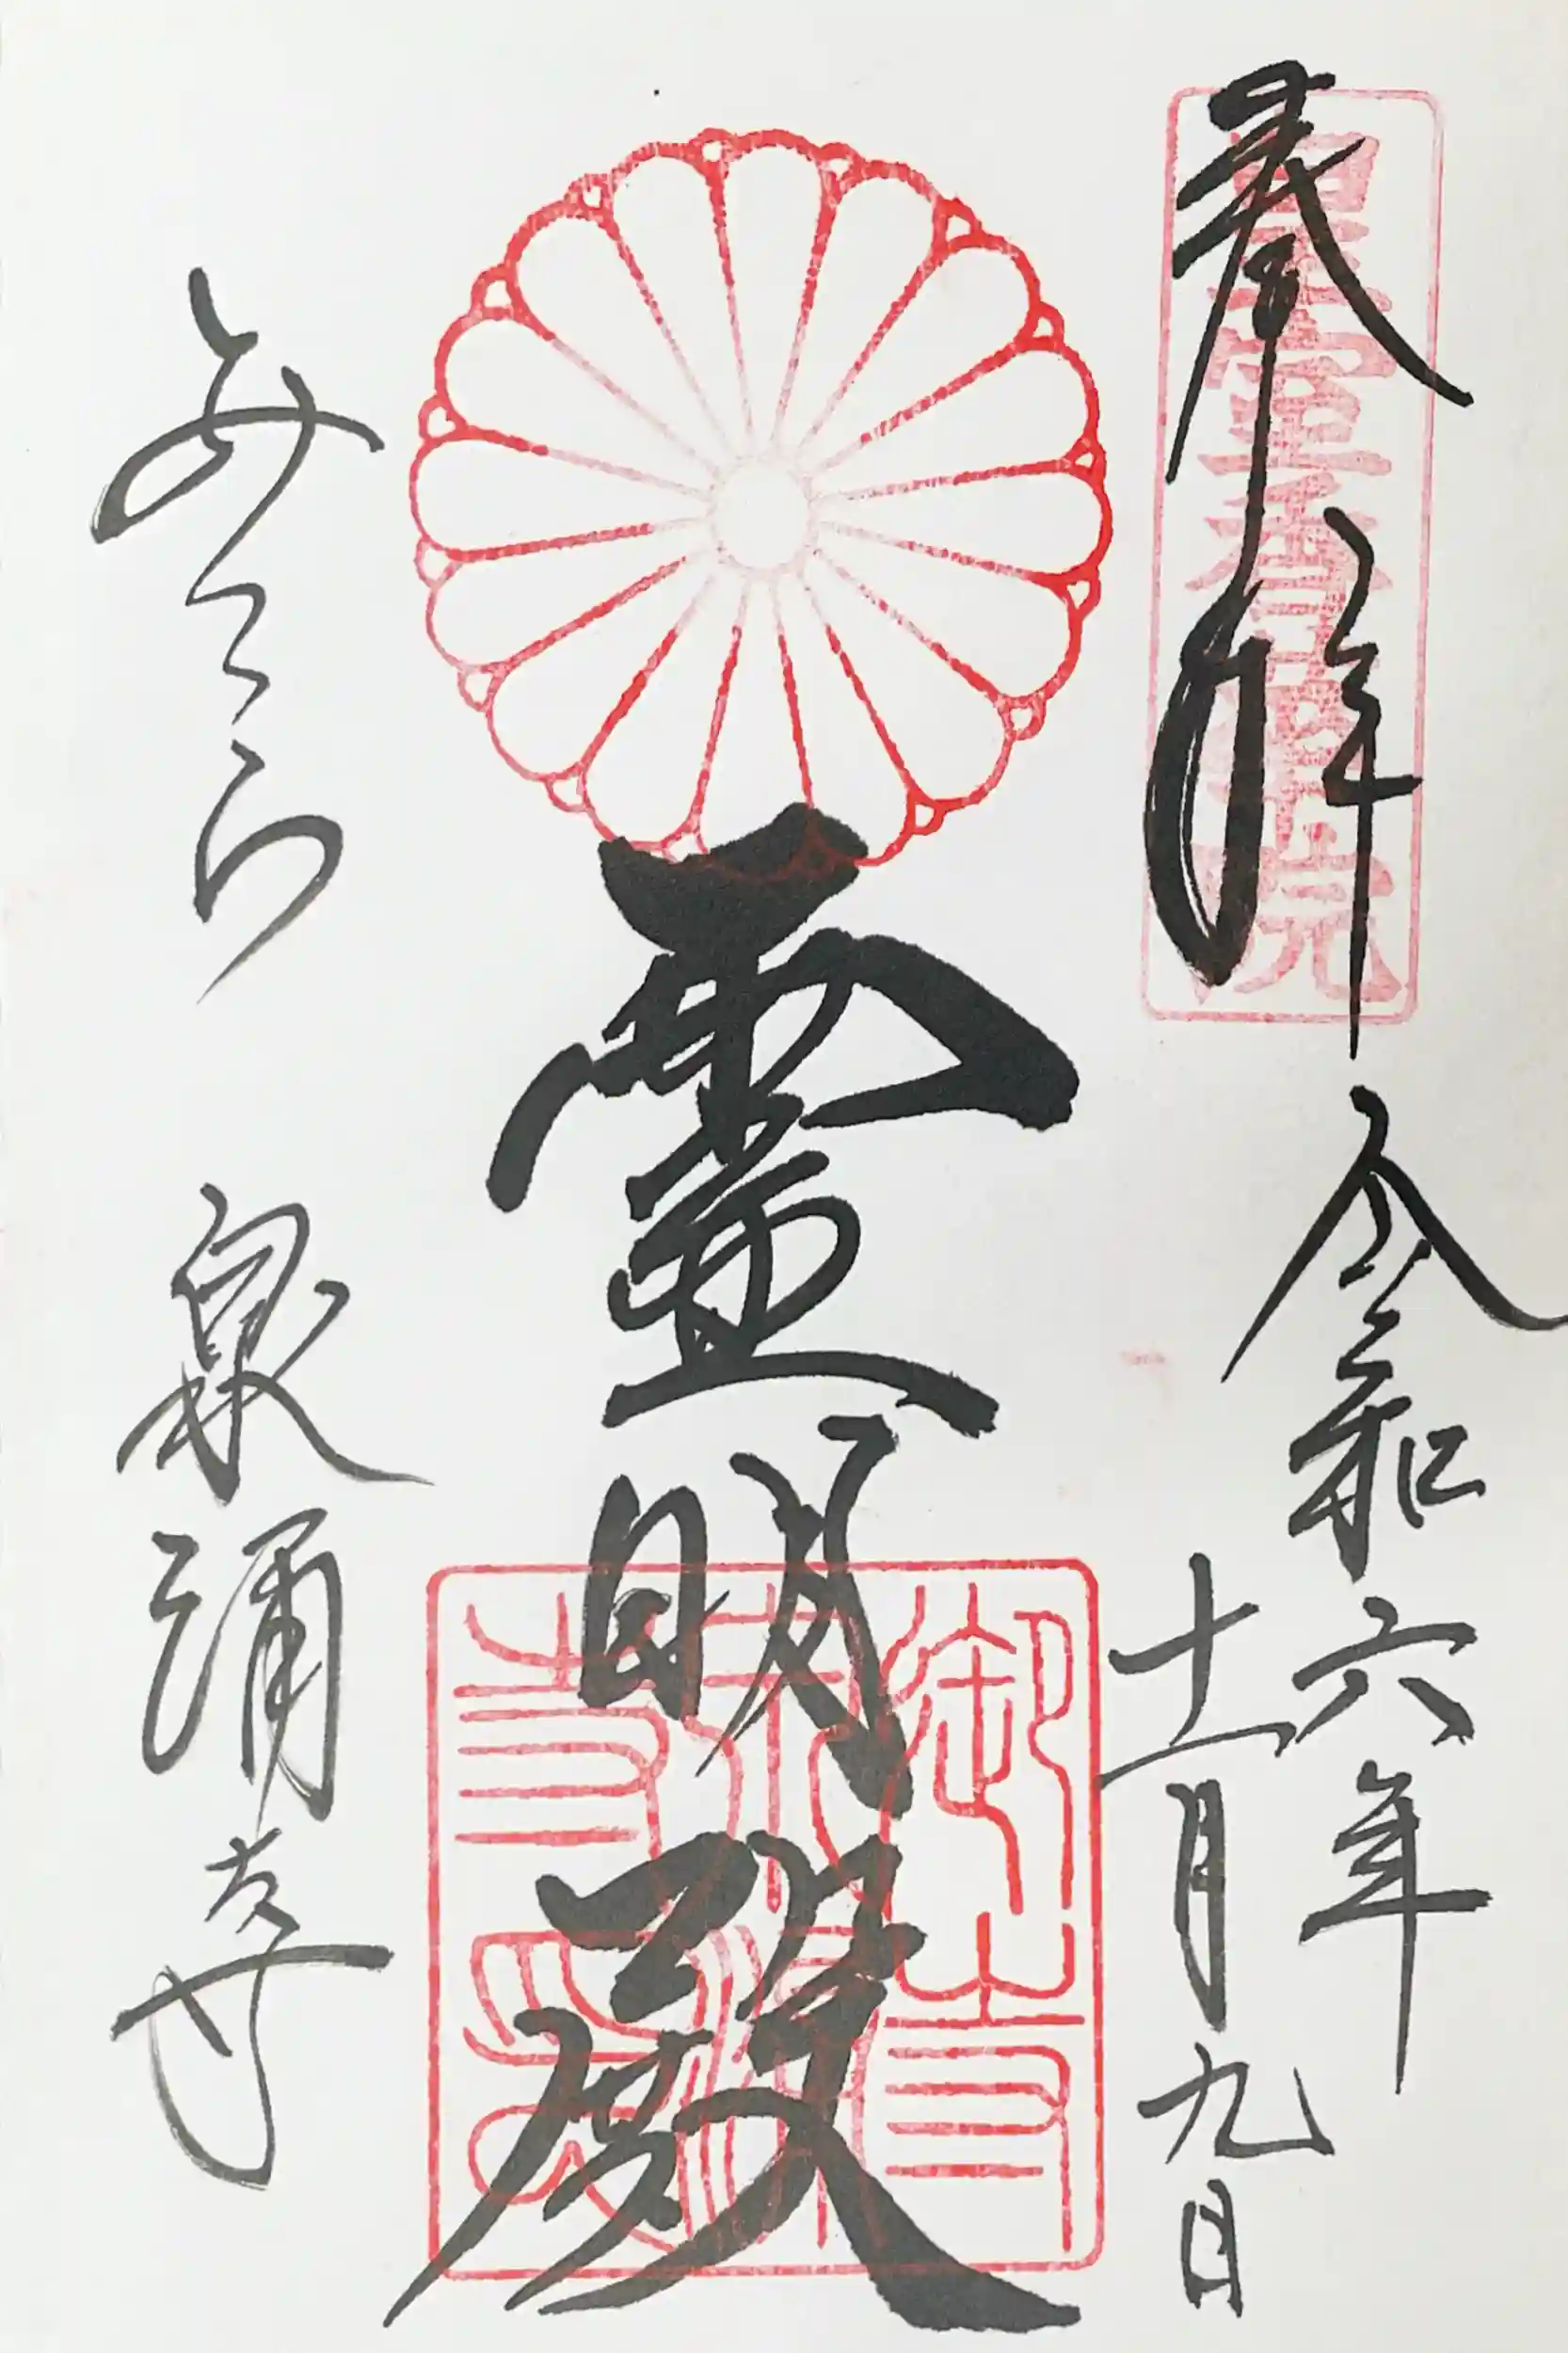 奉拝
皇室香華院
令和六年
十一月九日
霊明殿
御寺泉涌寺印
みてら
泉涌寺